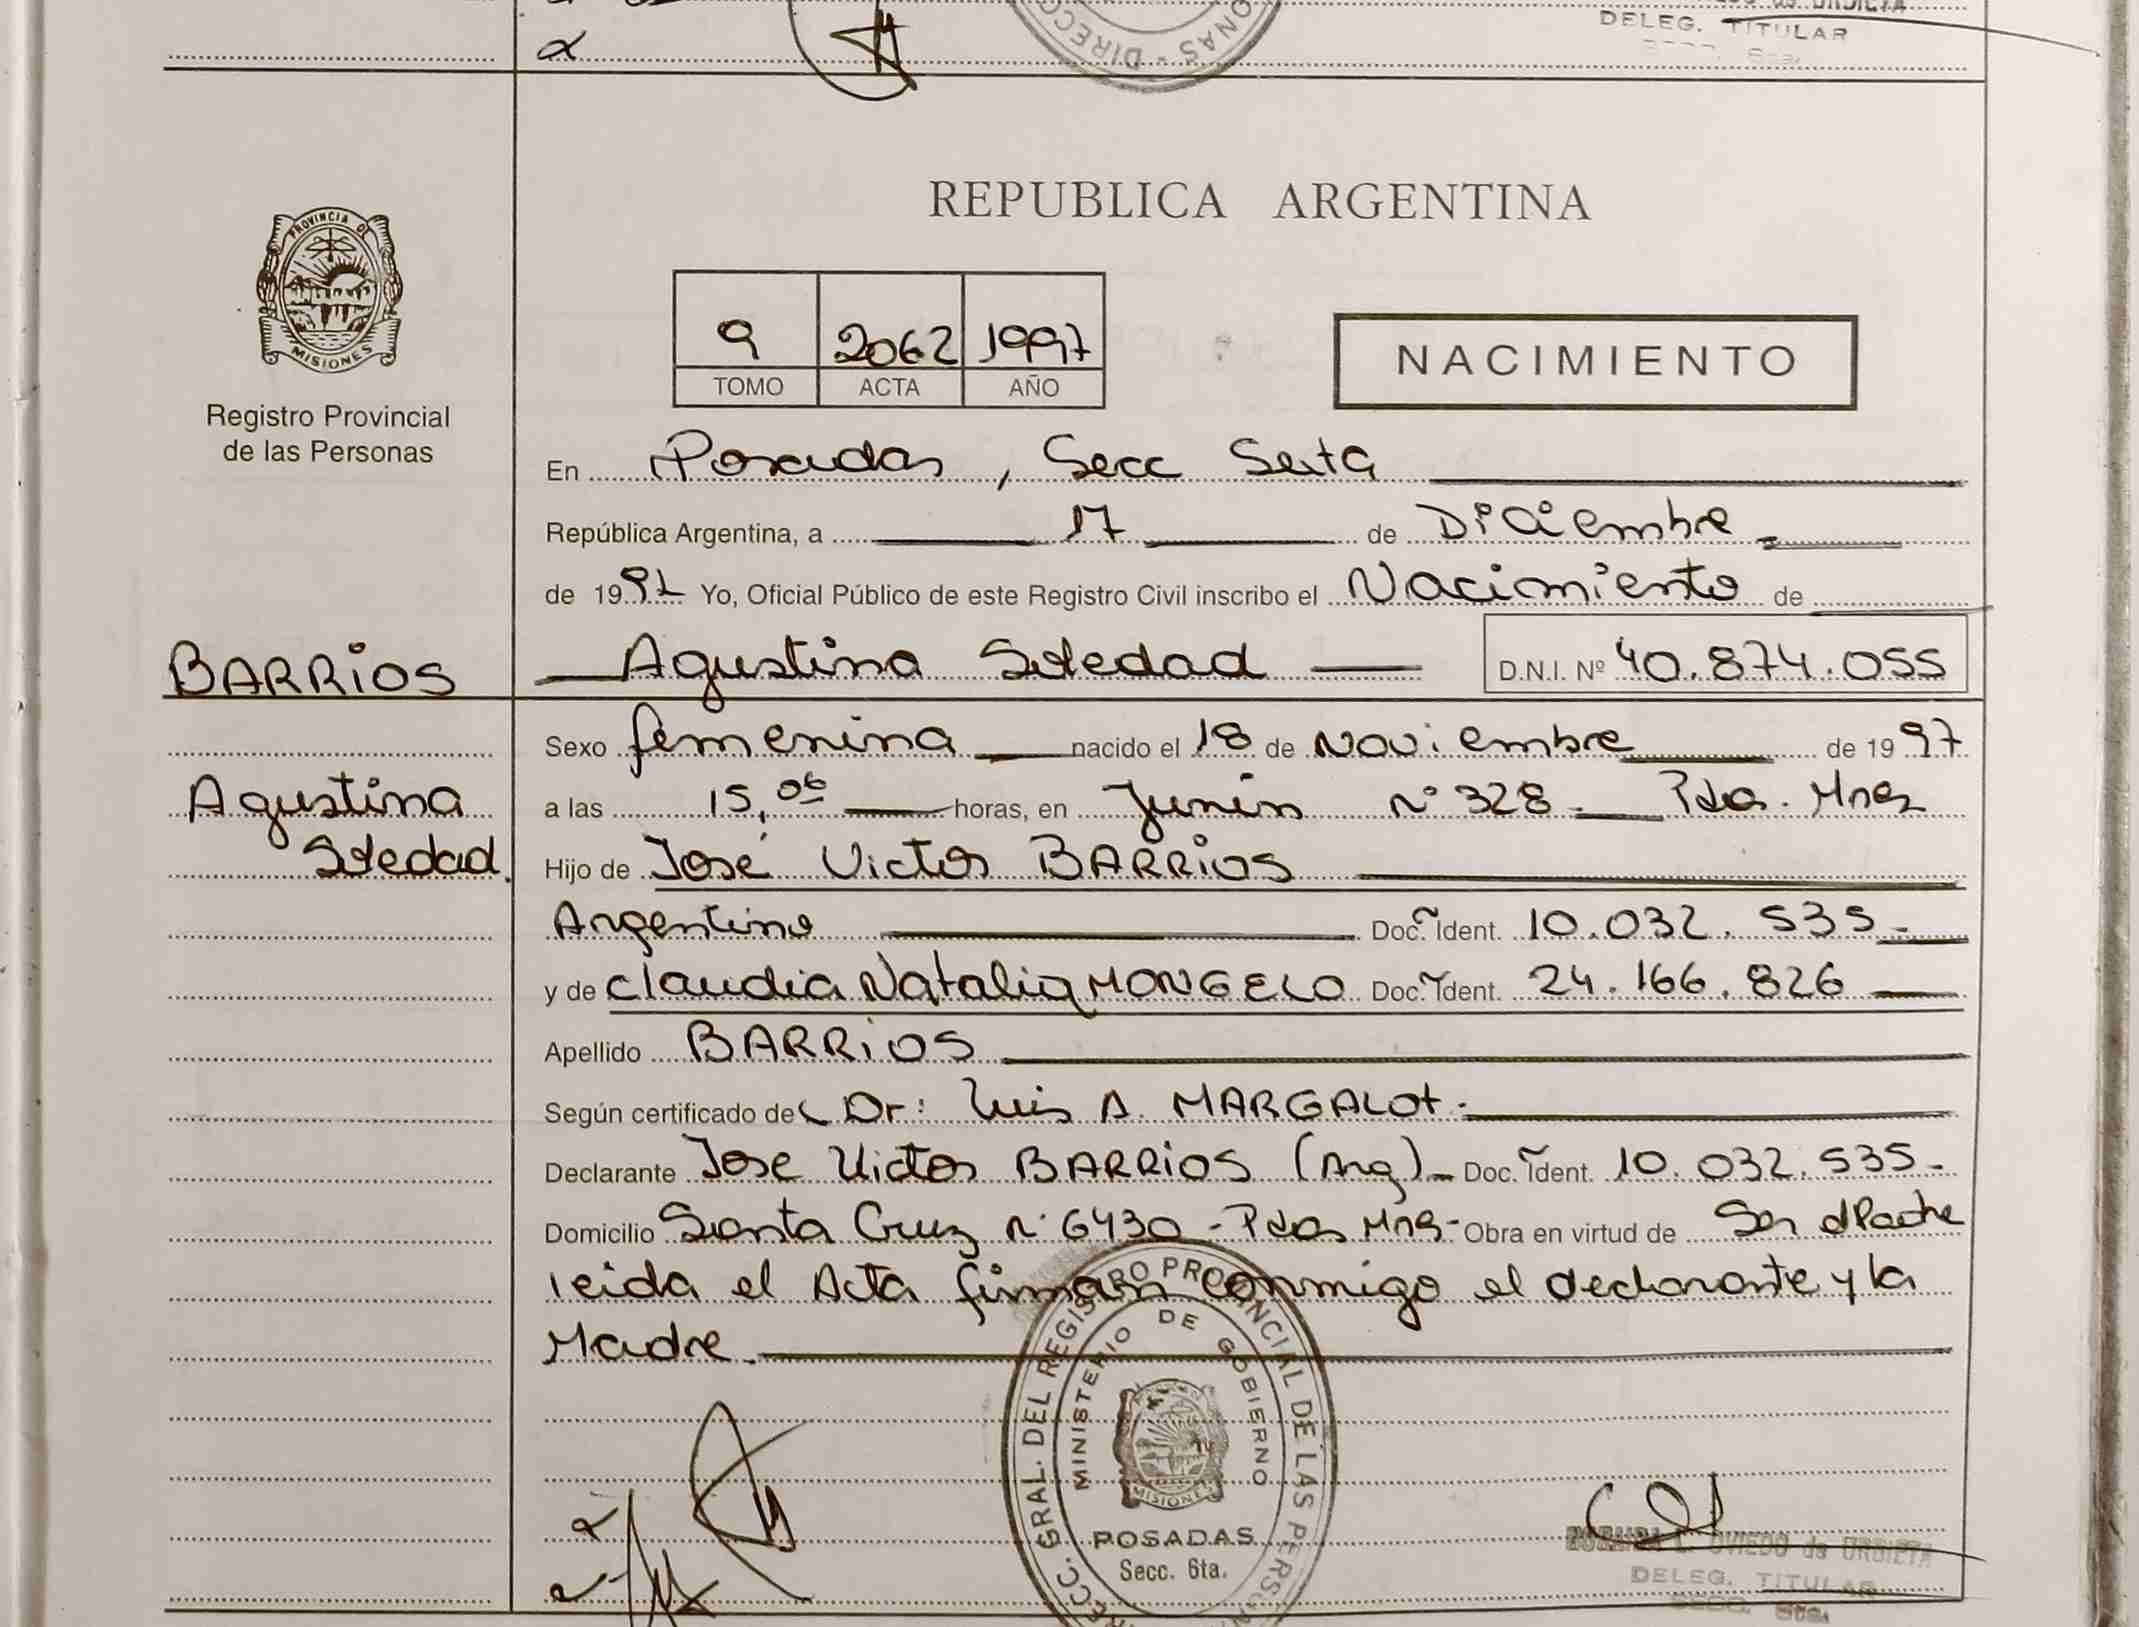 DIRECC
ONAS
DELEG. TITULAR
REPUBLICA ARGENTINA
PROVINCIA DE
MISIONES
Registro Provincial
de las Personas
9 2062 1997
TOMO ACTA AÑO
NACIMIENTO
En Posadas, Secc Sexta
República Argentina, a 17 de Diciembre
de 1997 Yo, Oficial Público de este Registro Civil inscribo el Nacimiento de
BARRIOS
Agustina Soledad D.N.I. Nº 40.874.055
Sexo femenina nacido el 18 de Noviembre de 1997
Agustina
Soledad.
a las 15,06 horas, en Junín Nº 328 - Pdas. Mnes
Hijo de José Victor BARRIOS
Argentino Doc. Ident. 10.032.535-
y de Claudia Natalia MONGELO Doc. Ident. 24.166.826
Apellido BARRIOS
Según certificado del Dr: Luis A. MARGALOT.
Declarante Jose Victor BARRIOS (Arg)- Doc. Ident. 10.032.535-
Domicilio Santa Cruz n° 6430 - Pdas Mns- Obra en virtud de Ser el Padre
leida el Acta firman conmigo el declarante y la
Madre.
DIRECC. GRAL. DEL REGISTRO PROVINCIAL DE LAS PERSONAS
MINISTERIO DE GOBIERNO
MISIONES
POSADAS
Secc. 6ta.
L. OVIEDO de URBIETA
DELEG. TITULAR
SECC. 6ta.